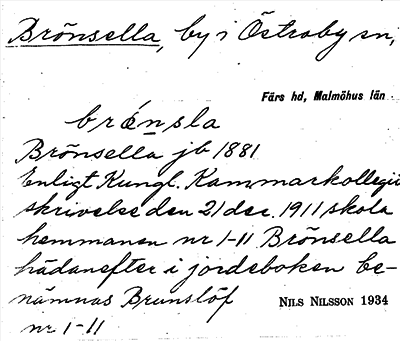 Brönsella, by i Östraby sn,
Färs hd, Malmöhus län
brǿnsla
Brönsella jb 1881
Enligt Kungl. Kammarkollegii
skrivelse den 21 dec. 1911 skola
hemmanen nr 1-11 Brönsella
hädanefter i jordeboken be-
nämnas Brunslöf
NILS NILSSON 1934
nr 1-11